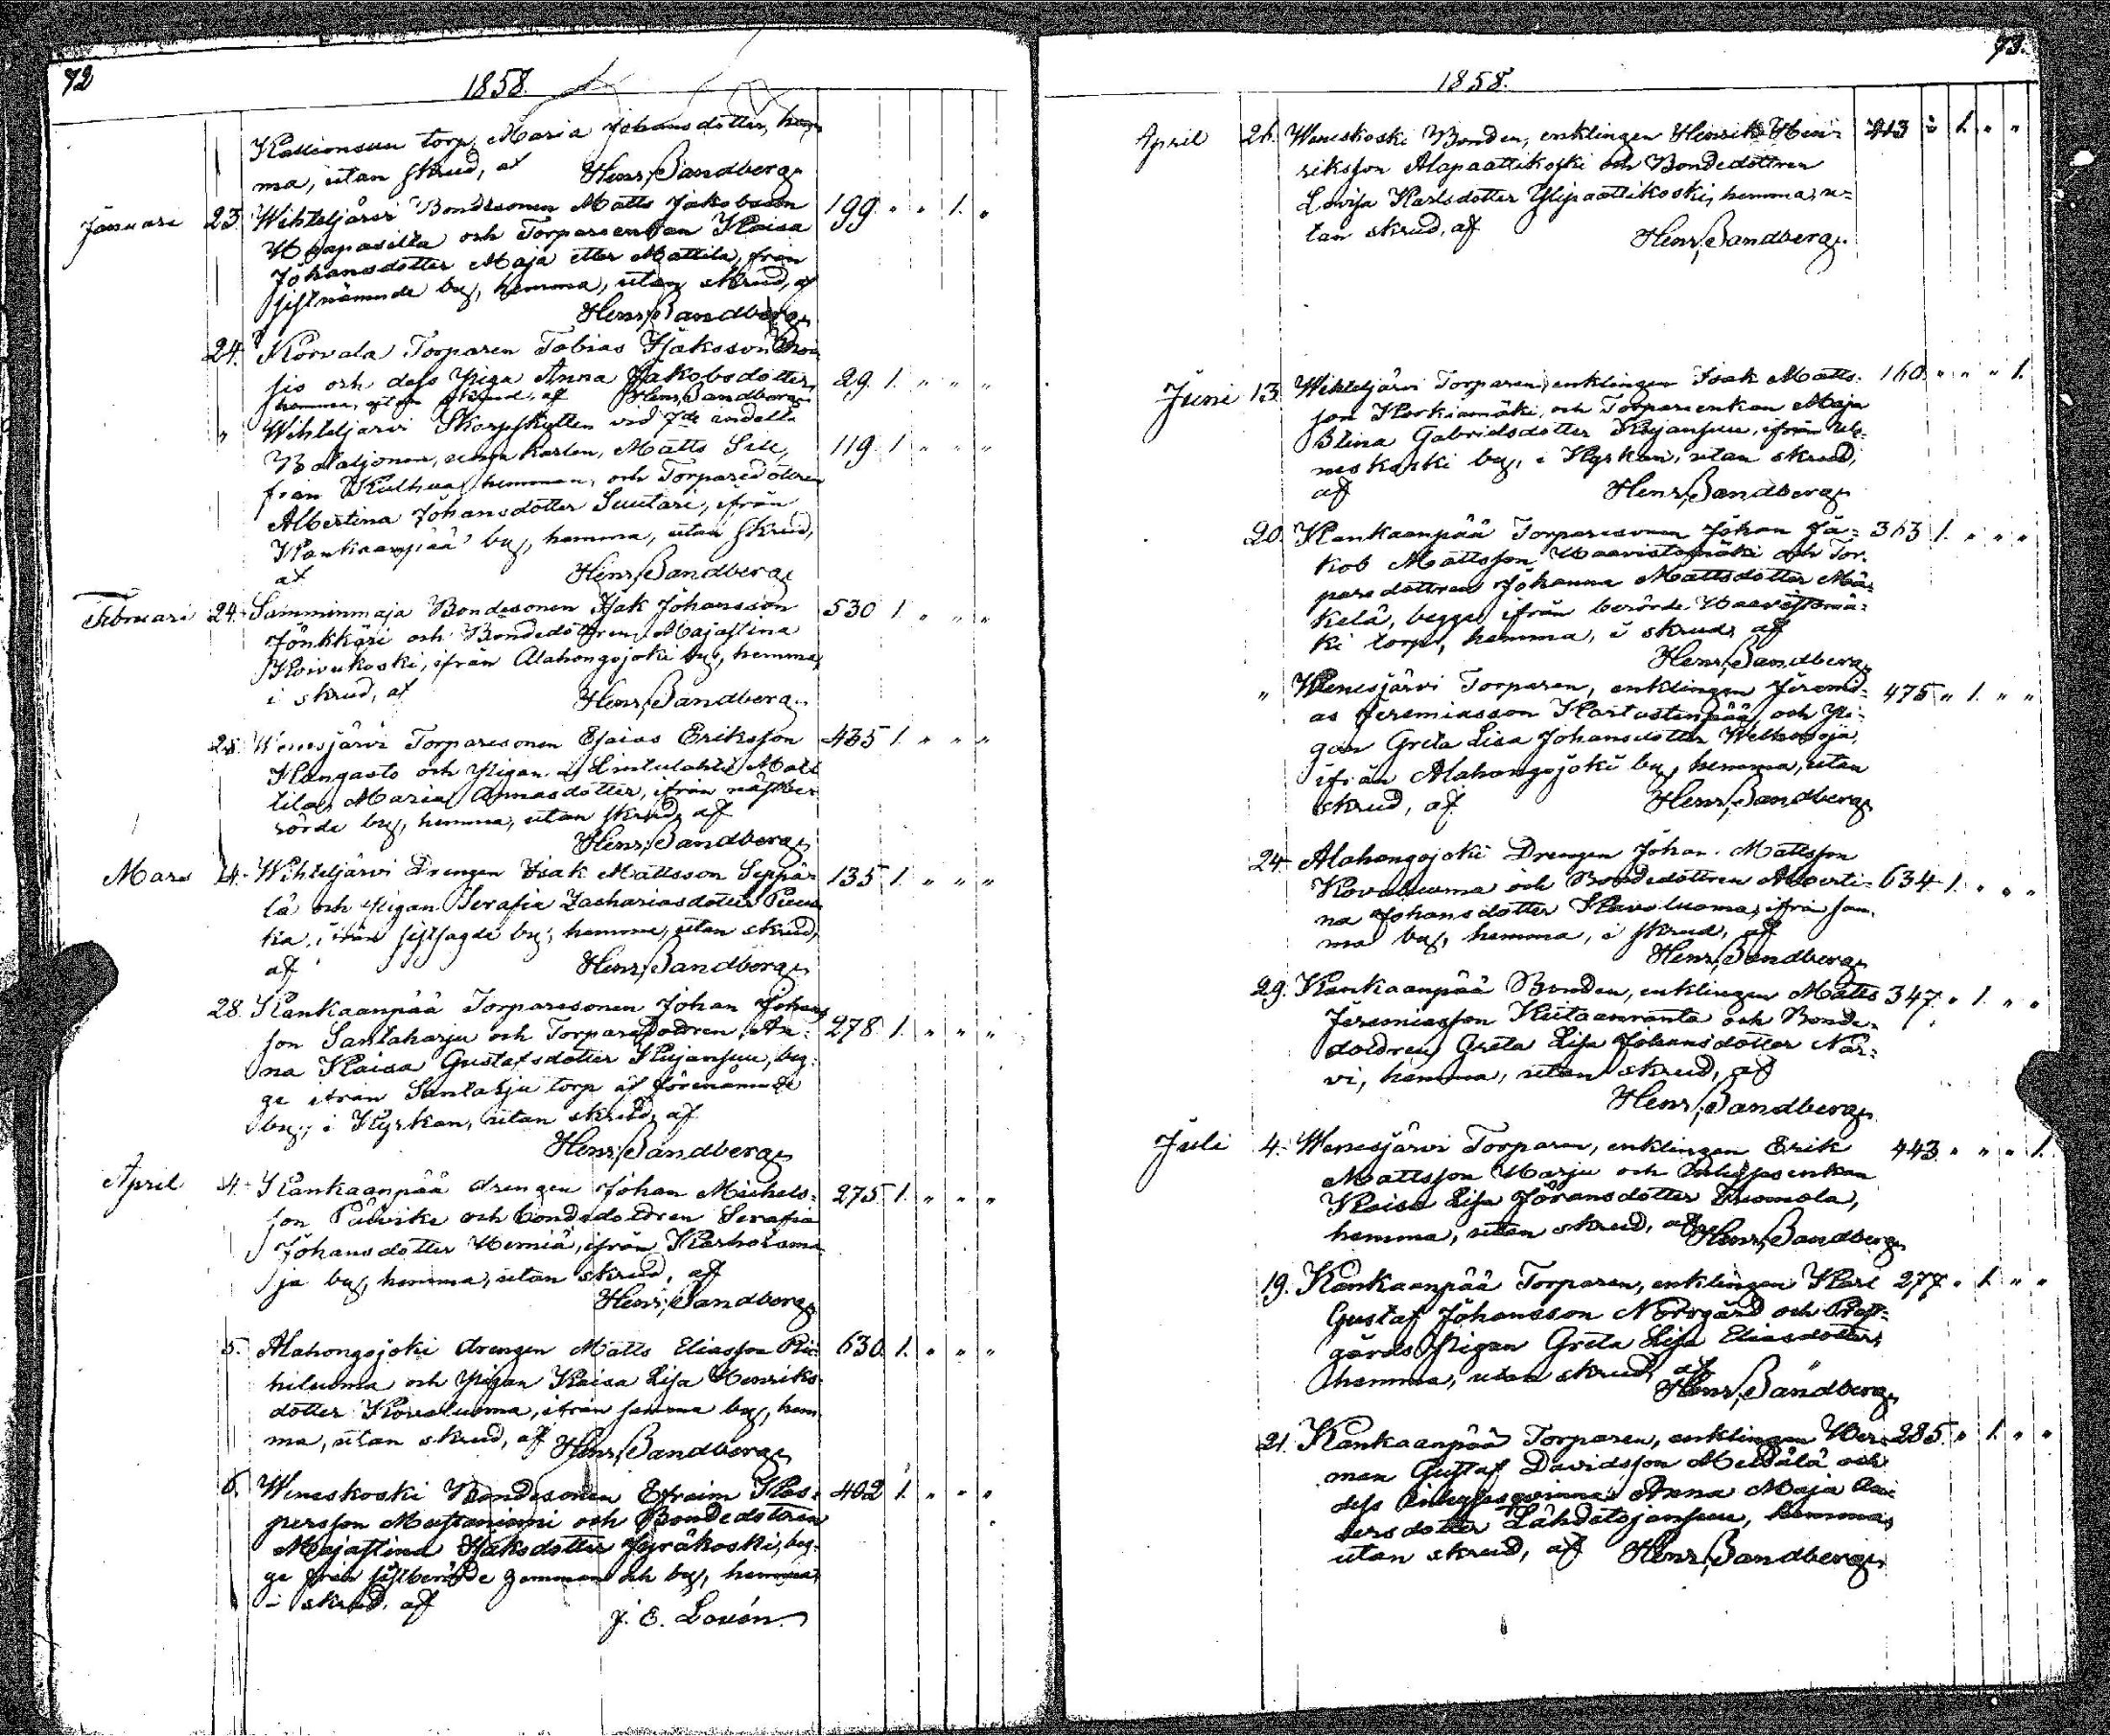 72
1858.
torp, Maria Johansdotter, hem
ma, utan skrud, af Henr. Sandberg.
Januari 23. Wihteljärvi Bondesonen Matts Jakobsson 199. " " 1. "
Haapasilta och Torpareenkan Kaisa
Johansdotter Maja eller Mattila, från
sistnämnde by, hemma, utan skrud, af
Henr. Sandberg.
24. Korvala Torparen Tobias Isaksson
sio och dess Piga Anna Jakobsdotter, 29. 1. " " "
hemma, utan skrud, af Henr. Sandberg.
" Wihteljärvi Skarpskytten vid 7de indelta
Bataljonen, unga karlen, Matts 119. 1 " " "
från hemman, och Torparedottren
Albertina Johansdotter Suutari, ifrån
Kankaanpää by, hemma, utan skrud,
af Henr. Sandberg.
Februari 24. Samminmaja Bondesonen Isak Johansson 530 1. " " "
Jönkkäri och Bondedottren Majastina
Koivukoski, ifrån Alahongojoki by, hemma,
i skrud, af Henr. Sandberg.
25. Wenesjärvi Torparesonen Esaias Eriksson 435 1. " " "
Kangasto och Pigan å Lintulahti Mat
tila, Maria Annasdotter, ifrån nästbe
rörde by, hemma, utan skrud, af
Henr. Sandberg.
Mars 14. Wihteljärvi Drengen Isak Mattsson Seppä 135 1. " " "
lä och Pigan Serafia Zachariasdotter
ka, ifrån sistsagde by, hemma, utan skrud,
af Henr. Sandberg.
28. Kankaanpää Torparesonen Johan Johans
son Santaharju och Torparedottren An= 278. 1. " " "
na Kaisa Gustafsdotter Kujansuu, beg=
ge ifrån torp af förenämnde
by, i Kyrkan, utan skrud, af
Henr. Sandberg.
April 4. Kankaanpää drengen Johan Michels= 275. 1. " " "
son och bondedottren Serafia
Johansdotter Herniä, ifrån Karhoisma
ja by, hemma, utan skrud, af
Henr. Sandberg.
5. Alahongojoki drengen Matts Eliasson Rii= 630. 1. " " "
hiluoma och Pigan Kaisa Lisa Henriks
dotter Kovaluoma, ifrån samma by, hem
ma, utan skrud, af Henr. Sandberg.
6. Weneskoski Bondesonen Efraim Kas= 402 1. " " "
persson Mustaniemi och Bondedottren
Majastina Isaksdotter Jyräkoski, beg=
ge från sistberörde hemman och by, hemma,
i skrud, af J. E. Lovén.
73.
1858.
April 26. Weneskoski Bonden, enklingen Henrik Hen= 413 " 1. " "
riksson Alapaattikoski och Bondedottren
Lovisa Karlsdotter Ylipaattikoski, hemma, u=
tan skrud, af Henr. Sandberg.
Juni 13. Wihteljärvi Torparen, enklingen Isak Matts= 160. " " " 1.
son Korkiamäki, och Torpareenkan Maja
Stina Gabrielsdotter Kujansuu, ifrån We=
neskoski by, i Kyrkan, utan skrud,
af Henr. Sandberg.
20. Kankaanpää Torparesonen Johan Ja= 363 1. " " "
kob Mattsson Haavistomäki och Tor=
paredottren Johanna Mattsdotter Mä=
kelä, begge ifrån berörde Haavistomä=
ki torp, hemma, i skrud, af
Henr. Sandberg.
" Wenesjärvi Torparen, enklingen Jeremi= 475 " 1. " "
as Jeremiasson Kartustenpää, och Pi=
gan Greta Lisa Johansdotter
ifrån Alahongojoki by, hemma, utan
skrud, af Henr. Sandberg.
24. Alahongojoki Drengen Johan Mattsson
Kovaluoma och Bondedottren Alberti= 634 1. " " "
na Johansdotter Kovaluoma, ifrån sam=
ma by, hemma, i skrud, af
Henr. Sandberg.
29. Kankaanpää Bonden, enklingen Matts 347. " 1. " "
Jeremiasson Kiitaanranta och Bonde=
dottren Greta Lisa Johansdotter När=
vi, hemma, utan skrud, af
Henr. Sandberg.
Juli 4. Wenesjärvi Torparen, enklingen Erik 443. " " " 1.
Mattsson Harju och Inhysesenkan
Kaisa Lisa Göransdotter Tuomola,
hemma, utan skrud, af Henr. Sandberg.
19. Kankaanpää Torparen, enklingen Karl 277. " 1. " "
Gustaf Johansson Norrgård och Prest=
gårds Pigan Greta Lisa Eliasdotter,
hemma, utan skrud, af
Henr. Sandberg.
21. Kankaanpää Torparen, enklingen Her= 285. " 1. " "
man Gustaf Davidsson och
dess Inhysesqvinna Anna Maja An=
dersdotter hemma,
utan skrud, af Henr. Sandberg.